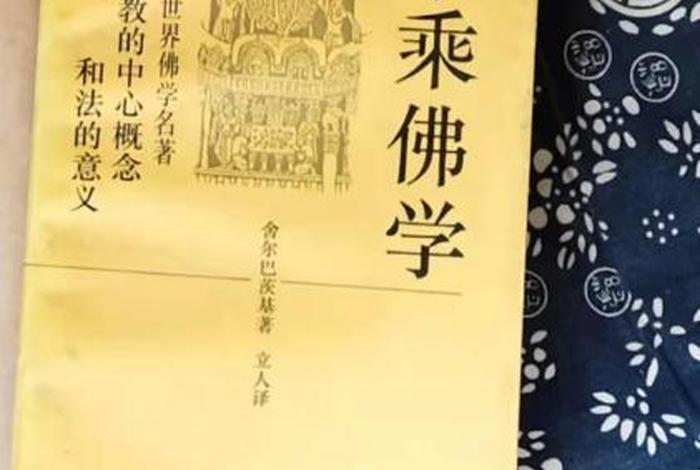 乘佛学
世界佛学名著
教的中心概念
和法的意义
舍尔巴茨基著 立人译